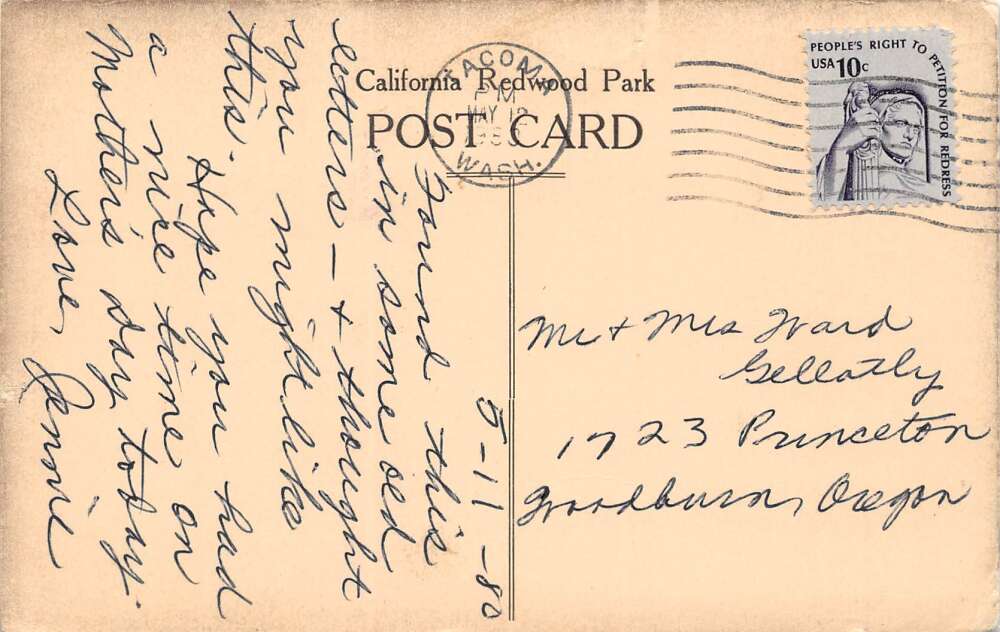 California Redwood Park
POST CARD
TACOMA
PM
MAY 12
WASH.
PEOPLE'S RIGHT TO PETITION FOR REDRESS
USA 10c
5-11-80
Found this
in some old
letters - & thought
you might like
this.
Hope you had
a nice time on
Mother's day today.
Love,
Mr & Mrs Ward
Gellatly
1723 Princeton
Woodburn, Oregon